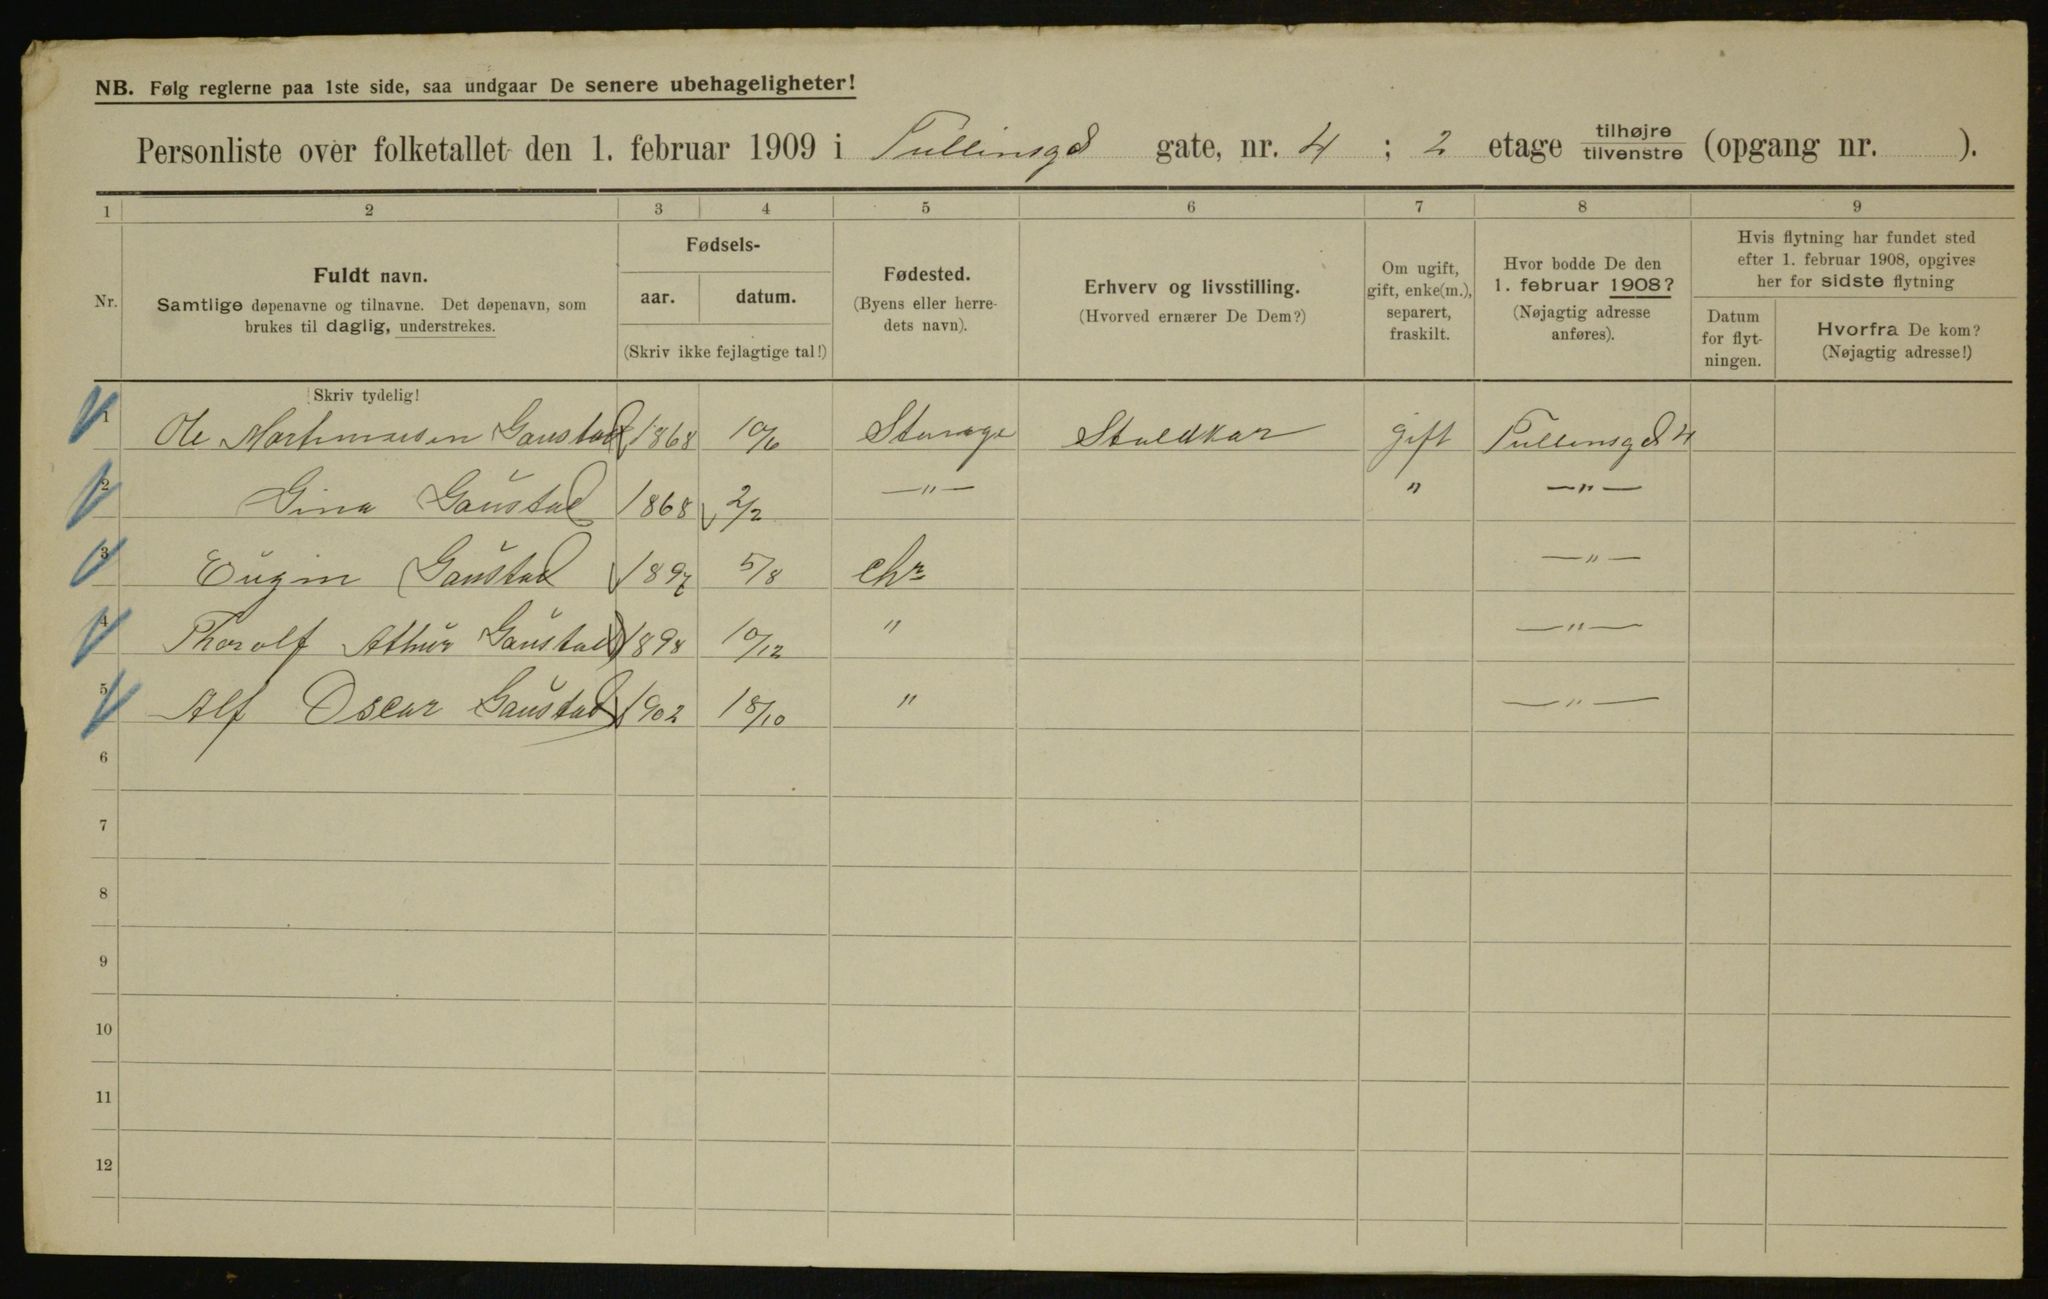 NB. Følg reglerne paa 1ste side, saa undgaar De senere ubehageligheter!
Personliste over folketallet den 1. februar 1909 i Tullinsgd gate, nr. 4 ; 2 etage tilhøjre / tilvenstre (opgang nr. ).
1 2 3 4 5 6 7 8 9
Nr.
Fuldt navn.
Samtlige døpenavne og tilnavne. Det døpenavn, som
brukes til daglig, understrekes.
Fødsels-
aar. datum.
(Skriv ikke fejlagtige tal!)
Fødested.
(Byens eller herre-
dets navn).
Erhverv og livsstilling.
(Hvorved ernærer De Dem?)
Om ugift,
gift, enke(m.),
separert,
fraskilt.
Hvor bodde De den
1. februar 1908?
(Nøjagtig adresse
anføres).
Hvis flytning har fundet sted
efter 1. februar 1908, opgives
her for sidste flytning
Datum
for flyt-
ningen.
Hvorfra De kom?
(Nøjagtig adresse!)
Skriv tydelig!
1 Ole Gaustad 1868 10/6 Stange Staldkar gift Tullinsgd 4
2 Gina Gaustad 1868 2/2 —"— " —"—
3 Eugin Gaustad 1897 5/8 Chr —"—
4 Thorolf Athur Gaustad 1898 10/12 " —"—
5 Alf Oscar Gaustad 1902 18/10 " —"—
6
7
8
9
10
11
12